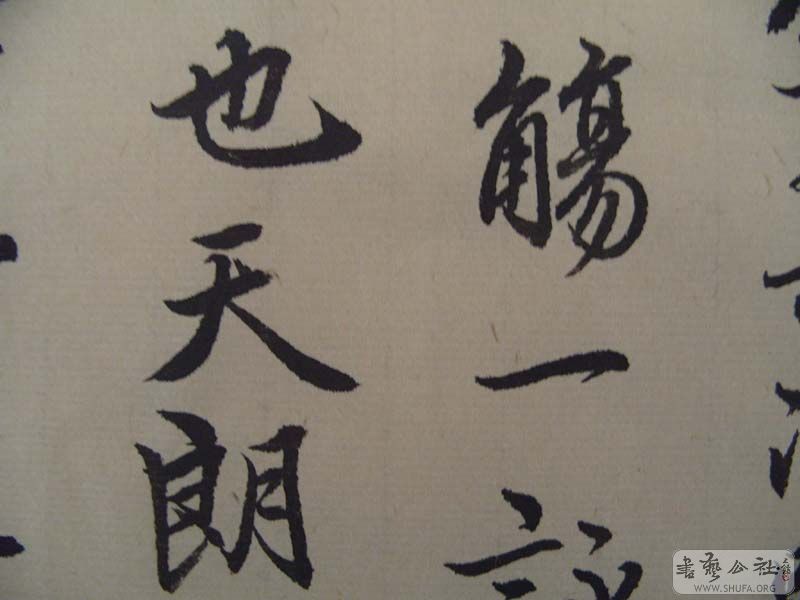 觴一詠
也天朗
書藝公社
WWW.SHUFA.ORG